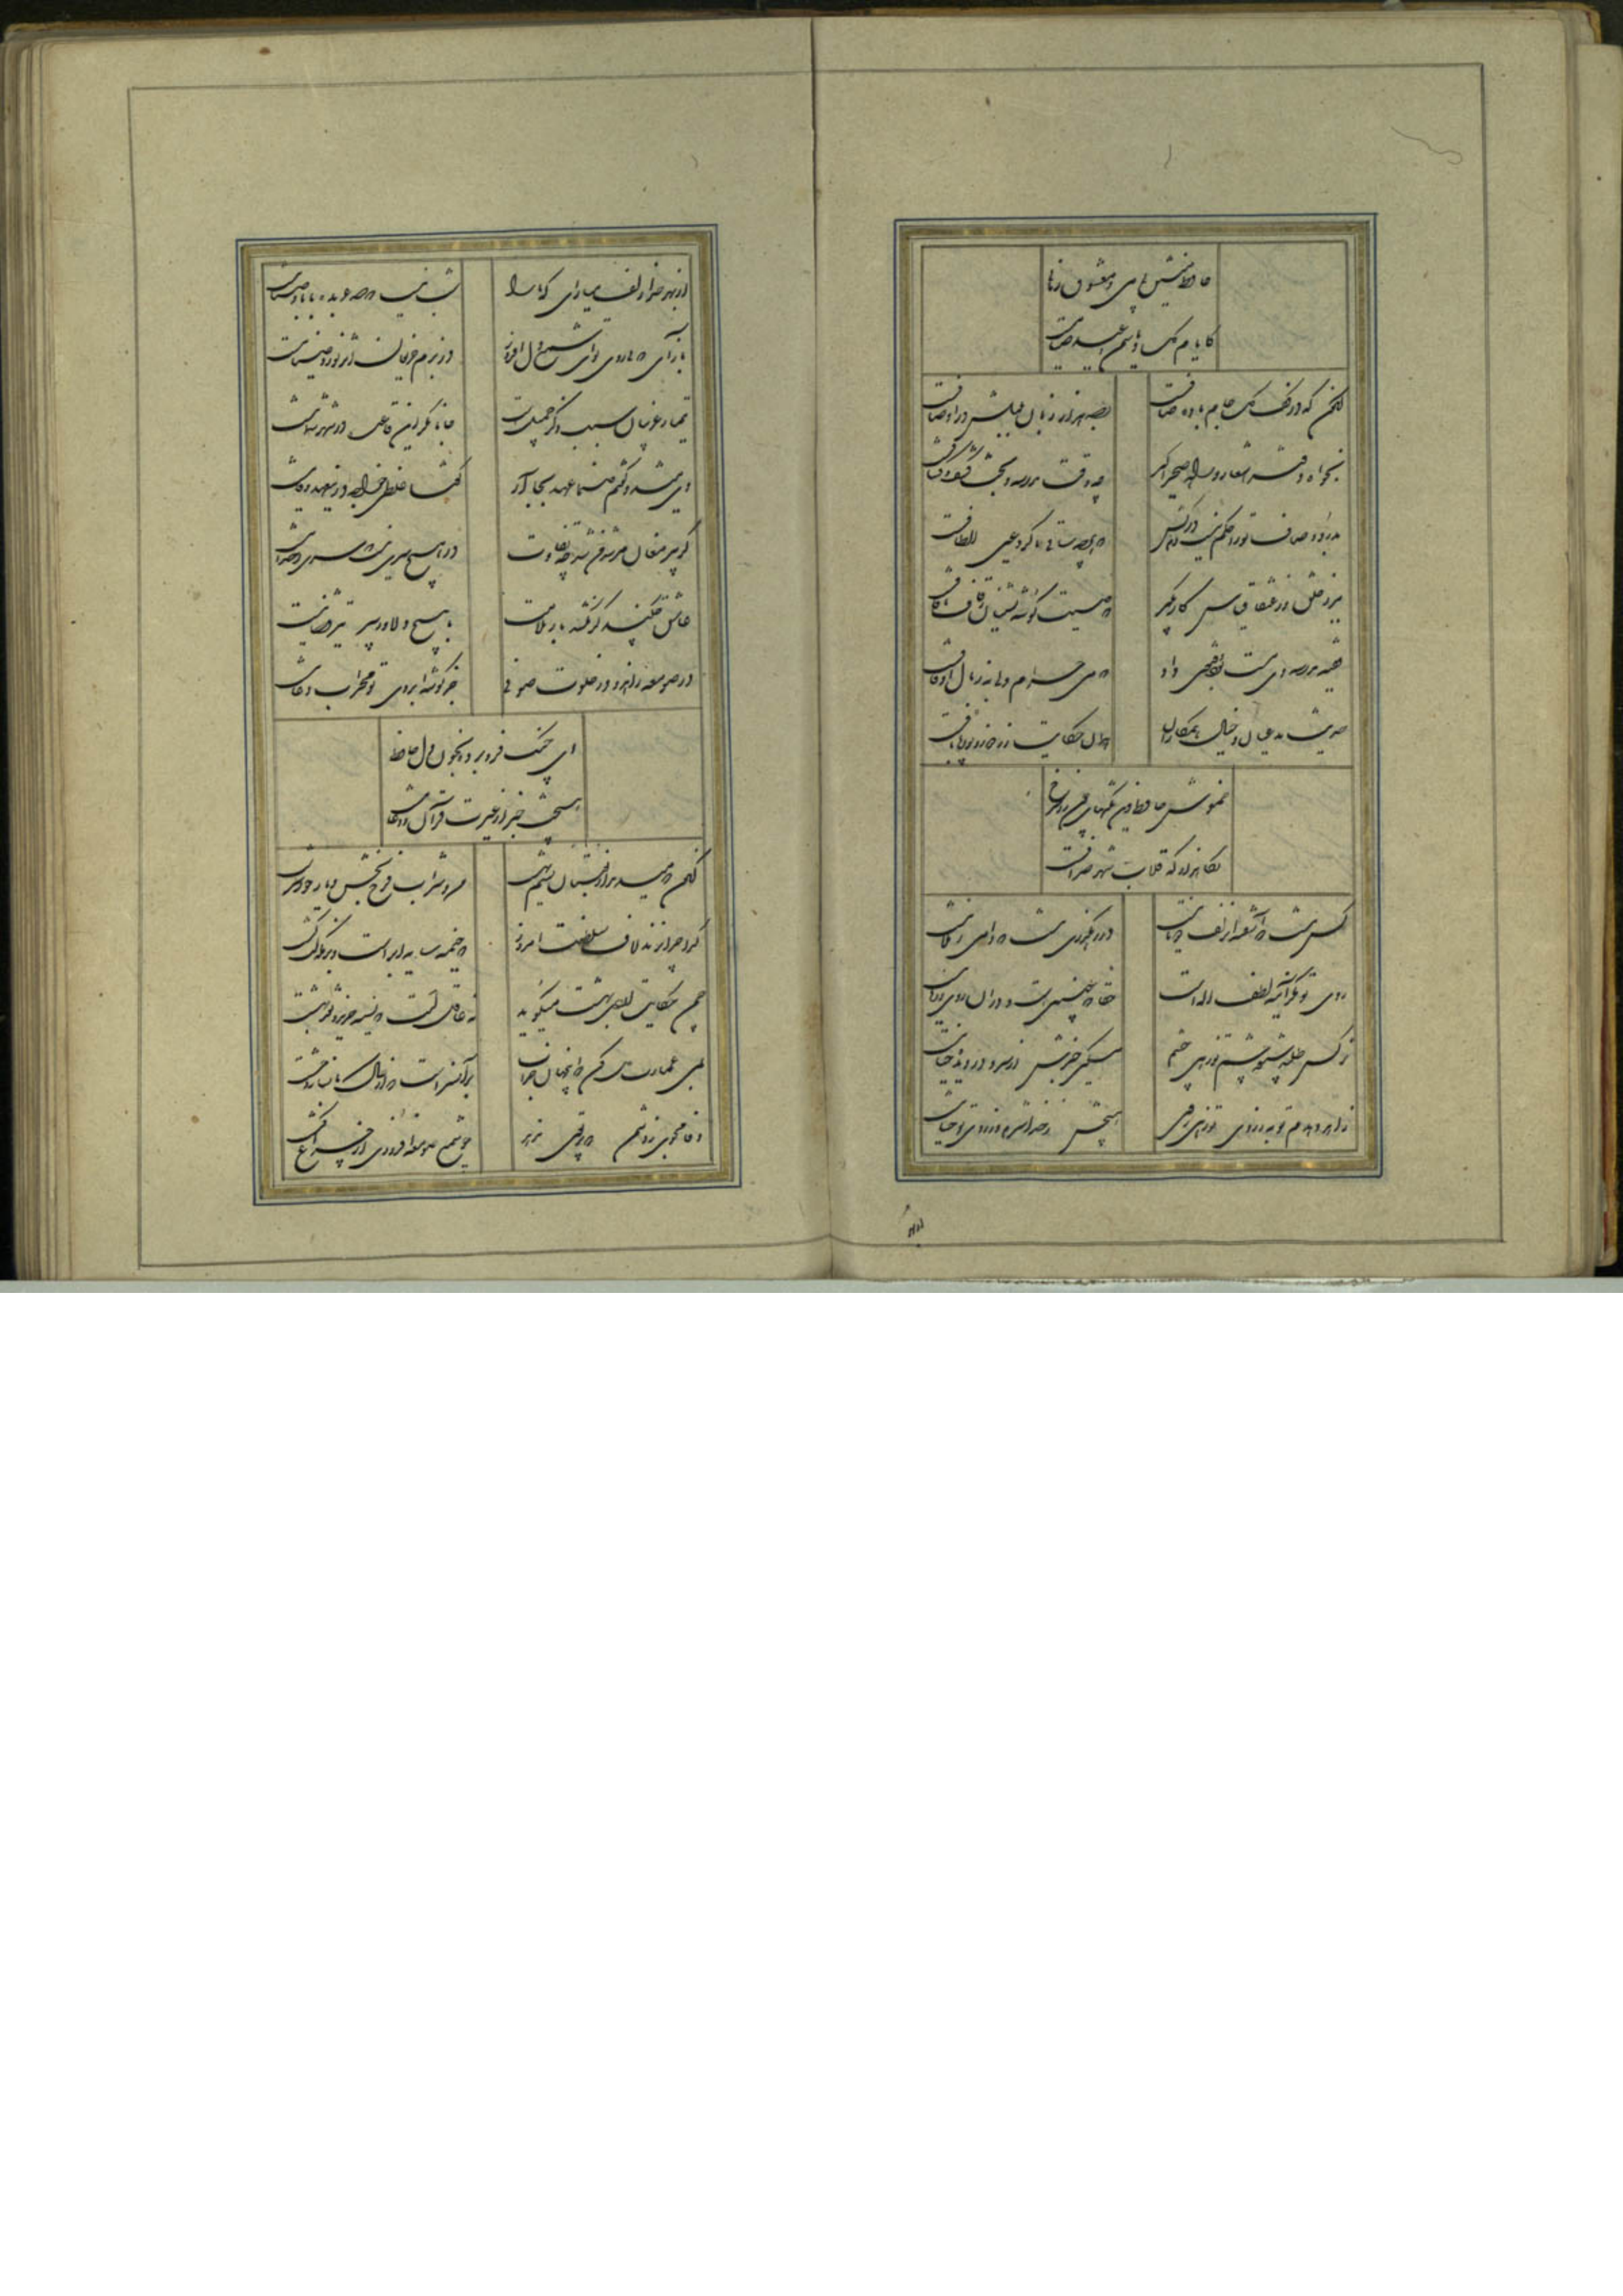 حافظ منشین بی می و معشوق زمانی
کایام گل و یاسمن و عید صیامست
کنون که در کف گل جام باده صافست
بصد هزار زبان بلبلش در اوصافست
بخواه دفتر اشعار و راه صحرا گیر
چه وقت مدرسه و بحث کشف کشافست
بدرد و صاف تو را حکم نیست دم درکش
که هرچه ساقی ما کرد عین الطافست
ببر ز خلق و ز عنقا قیاس کار بگیر
که صیت گوشه نشینان ز قاف تا قافست
فقیه مدرسه دی مست بود و فتوی داد
که می حرام ولی به ز مال اوقافست
حدیث مدعیان و خیال همکاران
همان حکایت زردوز و بوریا بافست
خموش حافظ و این نکتهای چون زر سرخ
نگاهدار که قلاب شهر صرافست
کس نیست که آشفته آن زلف دوتا نیست
در رهگذری نیست که دامی ز بلا نیست
روی تو مگر آینه لطف الهست
حقا که چنینست و در آن روی و ریا نیست
نرگس طلبد شیوه چشم تو زهی چشم
مسکین خبرش از سر و در دیده حیا نیست
زاهد دهدم توبه ز روی تو زهی روی
هیچش ز خدا شرم و ز روی تو حیا نیست
از بهر
از بهر خدا زلف میارای که ما را
شب نیست که صد عربده با باد صبا نیست
بازآی که بی روی تو ای شمع دل افروز
در بزم حریفان اثر نور و صفا نیست
تیمار غریبان سبب ذکر جمیلست
جانا مگر این قاعده در شهر شما نیست
دی میشد و گفتم صنما عهد بجای آر
گفتا غلطی خواجه درین عهد وفا نیست
گر پیر مغان مرشد من شد چه تفاوت
در هیچ سری نیست که سری ز خدا نیست
عاشق چکند گر نکشد بار ملامت
با هیچ دلاور سپر تیر قضا نیست
در صومعه زاهد و در خلوت صوفی
جز گوشه ابروی تو محراب دعا نیست
ای چنگ فرو برده بخون دل حافظ
هیچت خبر از غیرت قرآن و خدا نیست
کنون که میدمد از بوستان نسیم بهشت
من و شراب فرح بخش و یار حور سرشت
گدا چرا نزند لاف سلطنت امروز
که خیمه سایه ابرست و بزمگه لب کشت
چمن حکایت اردیبهشت میگوید
نه عاقلست که نسیه خرید و نقد بهشت
بمی عمارت دل کن که این جهان خراب
بر آن سرست که از خاک ما بسازد خشت
وفا مجوی ز دشمن که پرتوی ندهد
چو شمع صومعه افروزی از چراغ کنشت